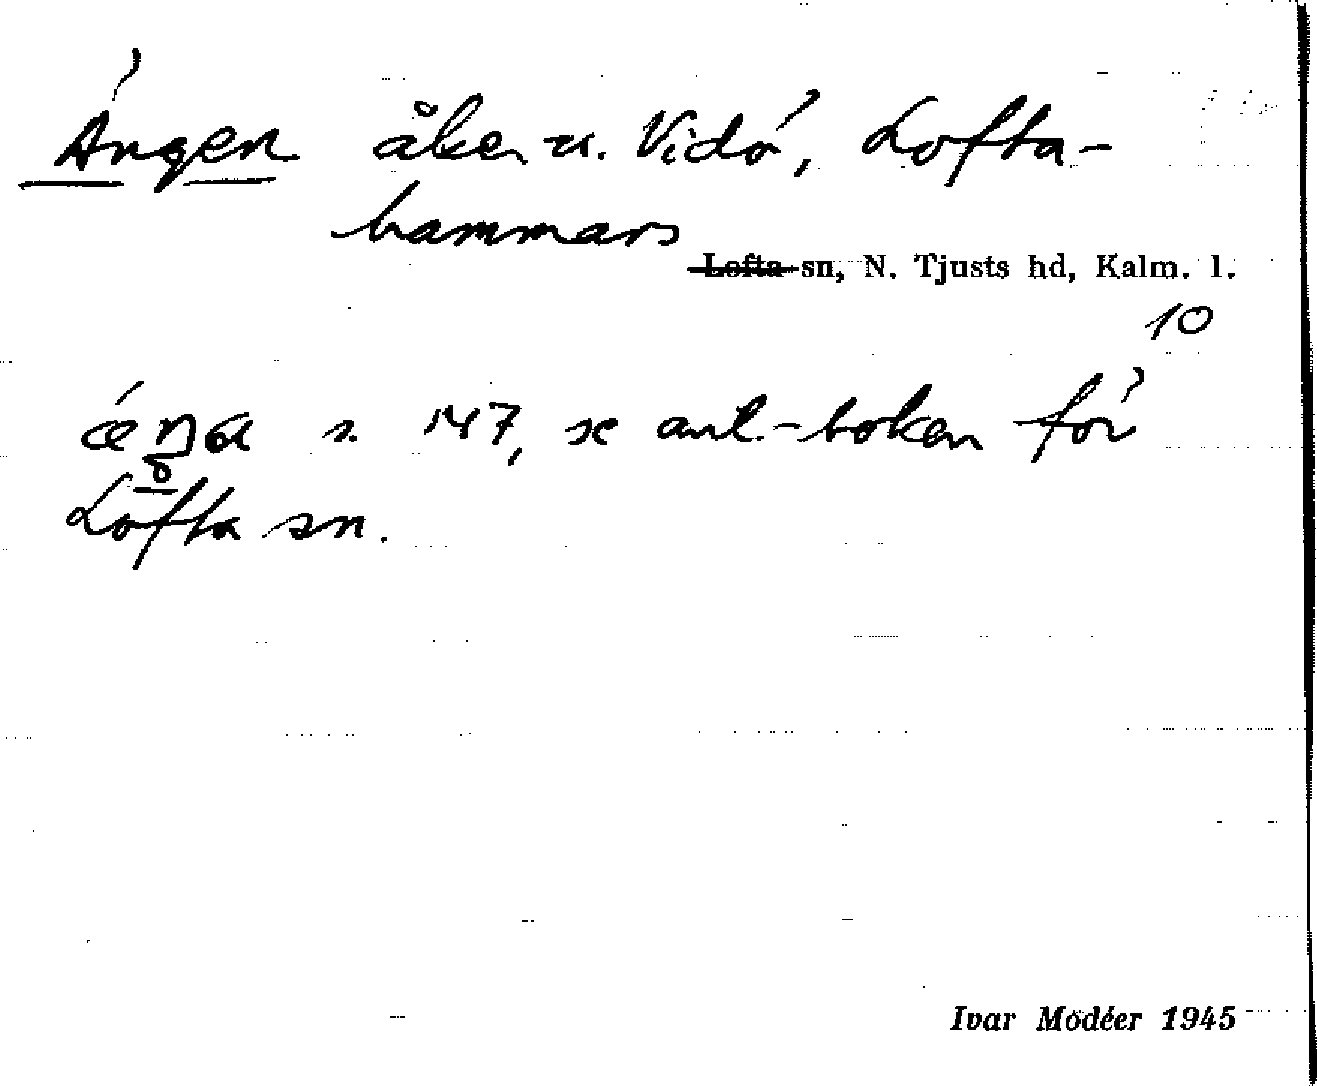 Ängen åker u. Vidö, Lofta-
hammars
Lofta sn, N. Tjusts hd, Kalm. l.
10
s. 147, se ant.-boken för
Lofta sn.
Ivar Modéer 1945